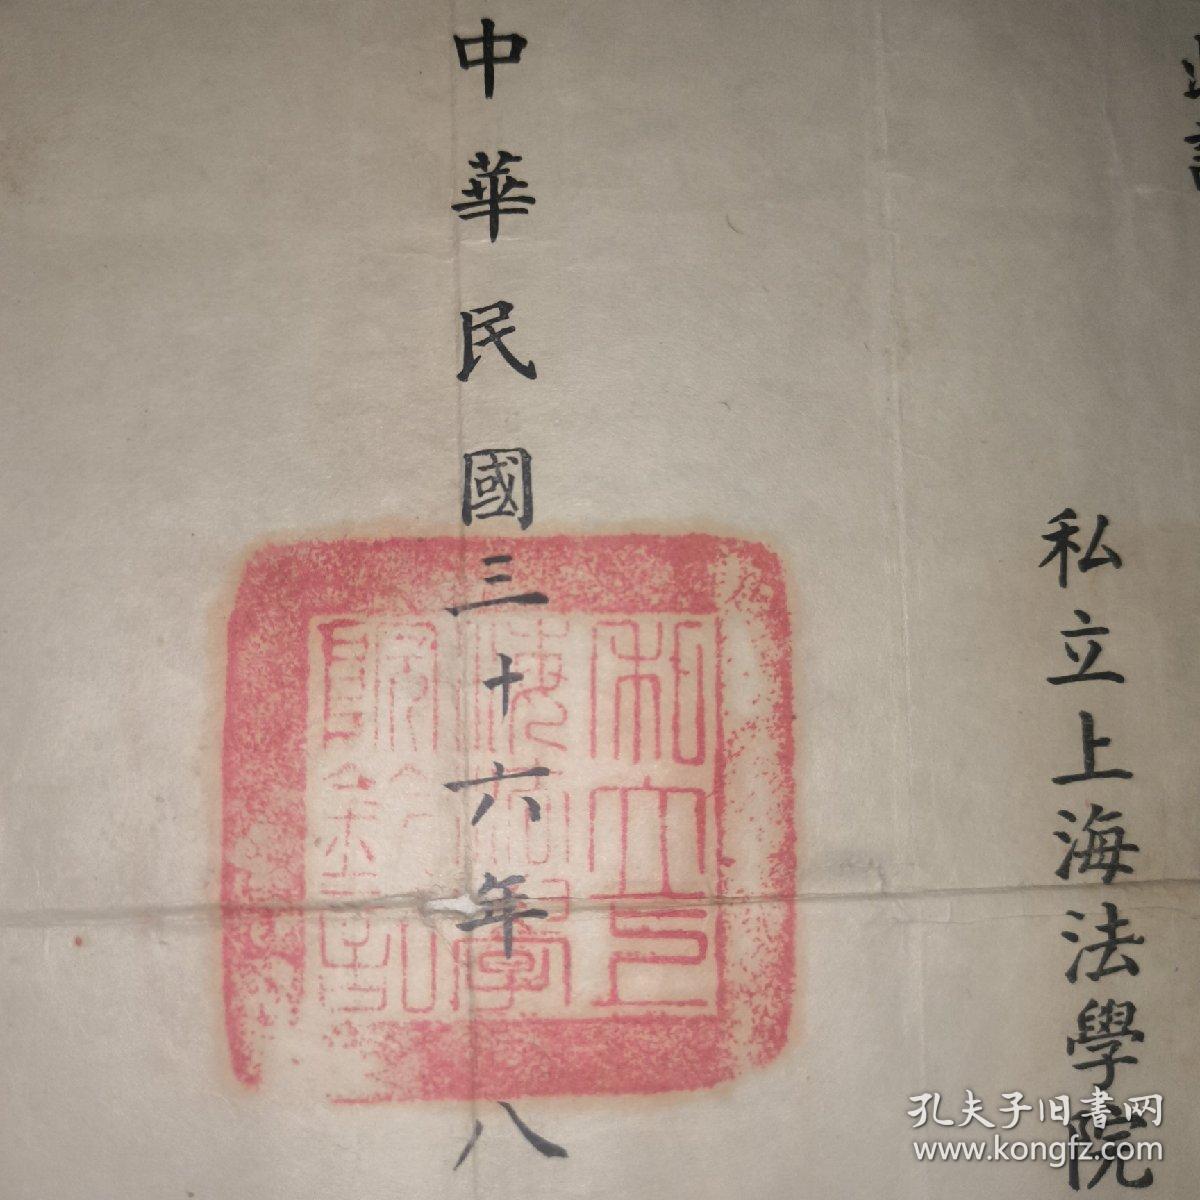 私立上海法學院
中華民國三十六年 八
私立上
海法學
院鈐記
孔夫子旧書网
www.kongfz.com